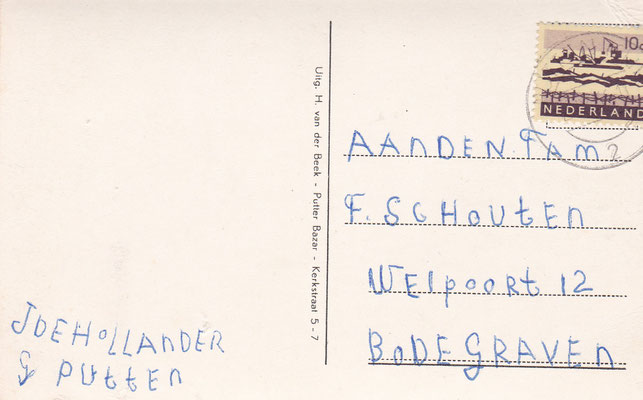 10c
NEDERLAND
AAN DEN FAM
F. SCHOUTEN
WElpoort 12
BODEGRAVEN
Uitg. H. van der Beek - Putter Bazar - Kerkstraat 5 - 7
J DE HOLLANDER
PUTTEN